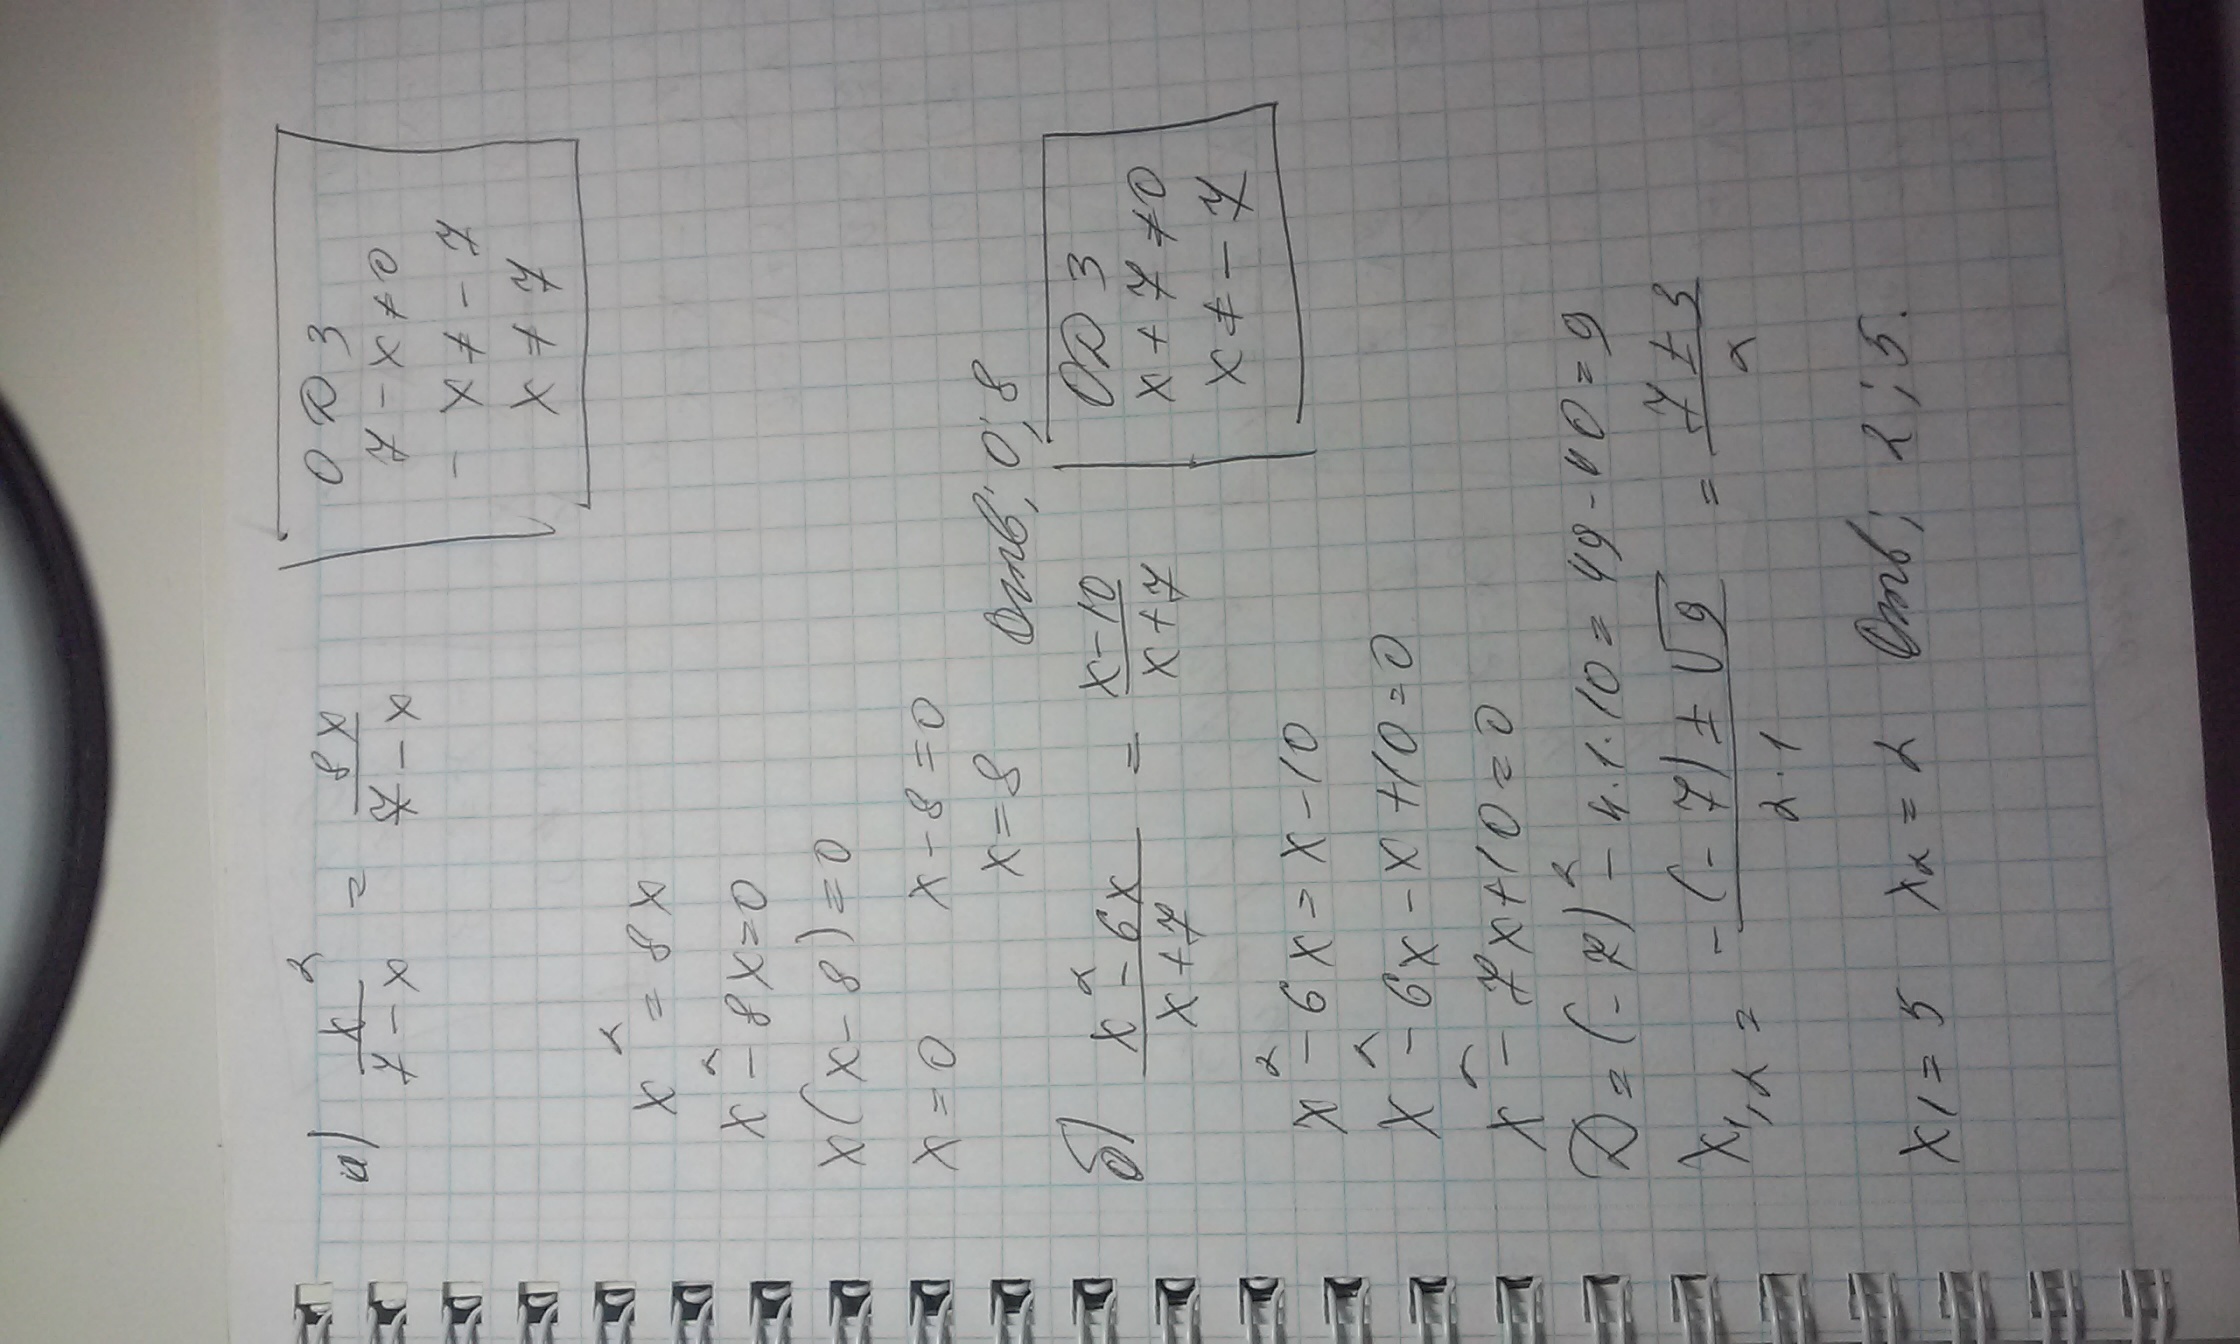 а) x²/(7 - x) = 8x/(7 - x)
ОДЗ
7 - x ≠ 0
- x ≠ - 7
x ≠ 7
x² = 8x
x² - 8x = 0
x(x - 8) = 0
x = 0 x - 8 = 0
x = 8
Отв; 0; 8
б) (x² - 6x)/(x + 7) = (x - 10)/(x + 7)
ОДЗ
x + 7 ≠ 0
x ≠ - 7
x² - 6x = x - 10
x² - 6x - x + 10 = 0
x² - 7x + 10 = 0
D = (-7)² - 4·1·10 = 49 - 40 = 9
x1,2 = (-(-7) ± √9)/(2·1) = (7 ± 3)/2
x1 = 5 x2 = 2 Отв; 2; 5.